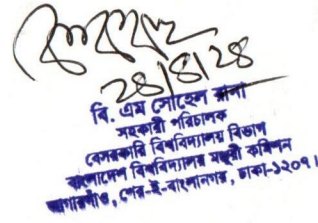 ২৪/৪/২৪
বি. এম সোহেল রানা
সহকারী পরিচালক
বেসরকারি বিশ্ববিদ্যালয় বিভাগ
বাংলাদেশ বিশ্ববিদ্যালয় মঞ্জুরী কমিশন
আগারগাঁও, শের-ই-বাংলানগর, ঢাকা-১২০৭।